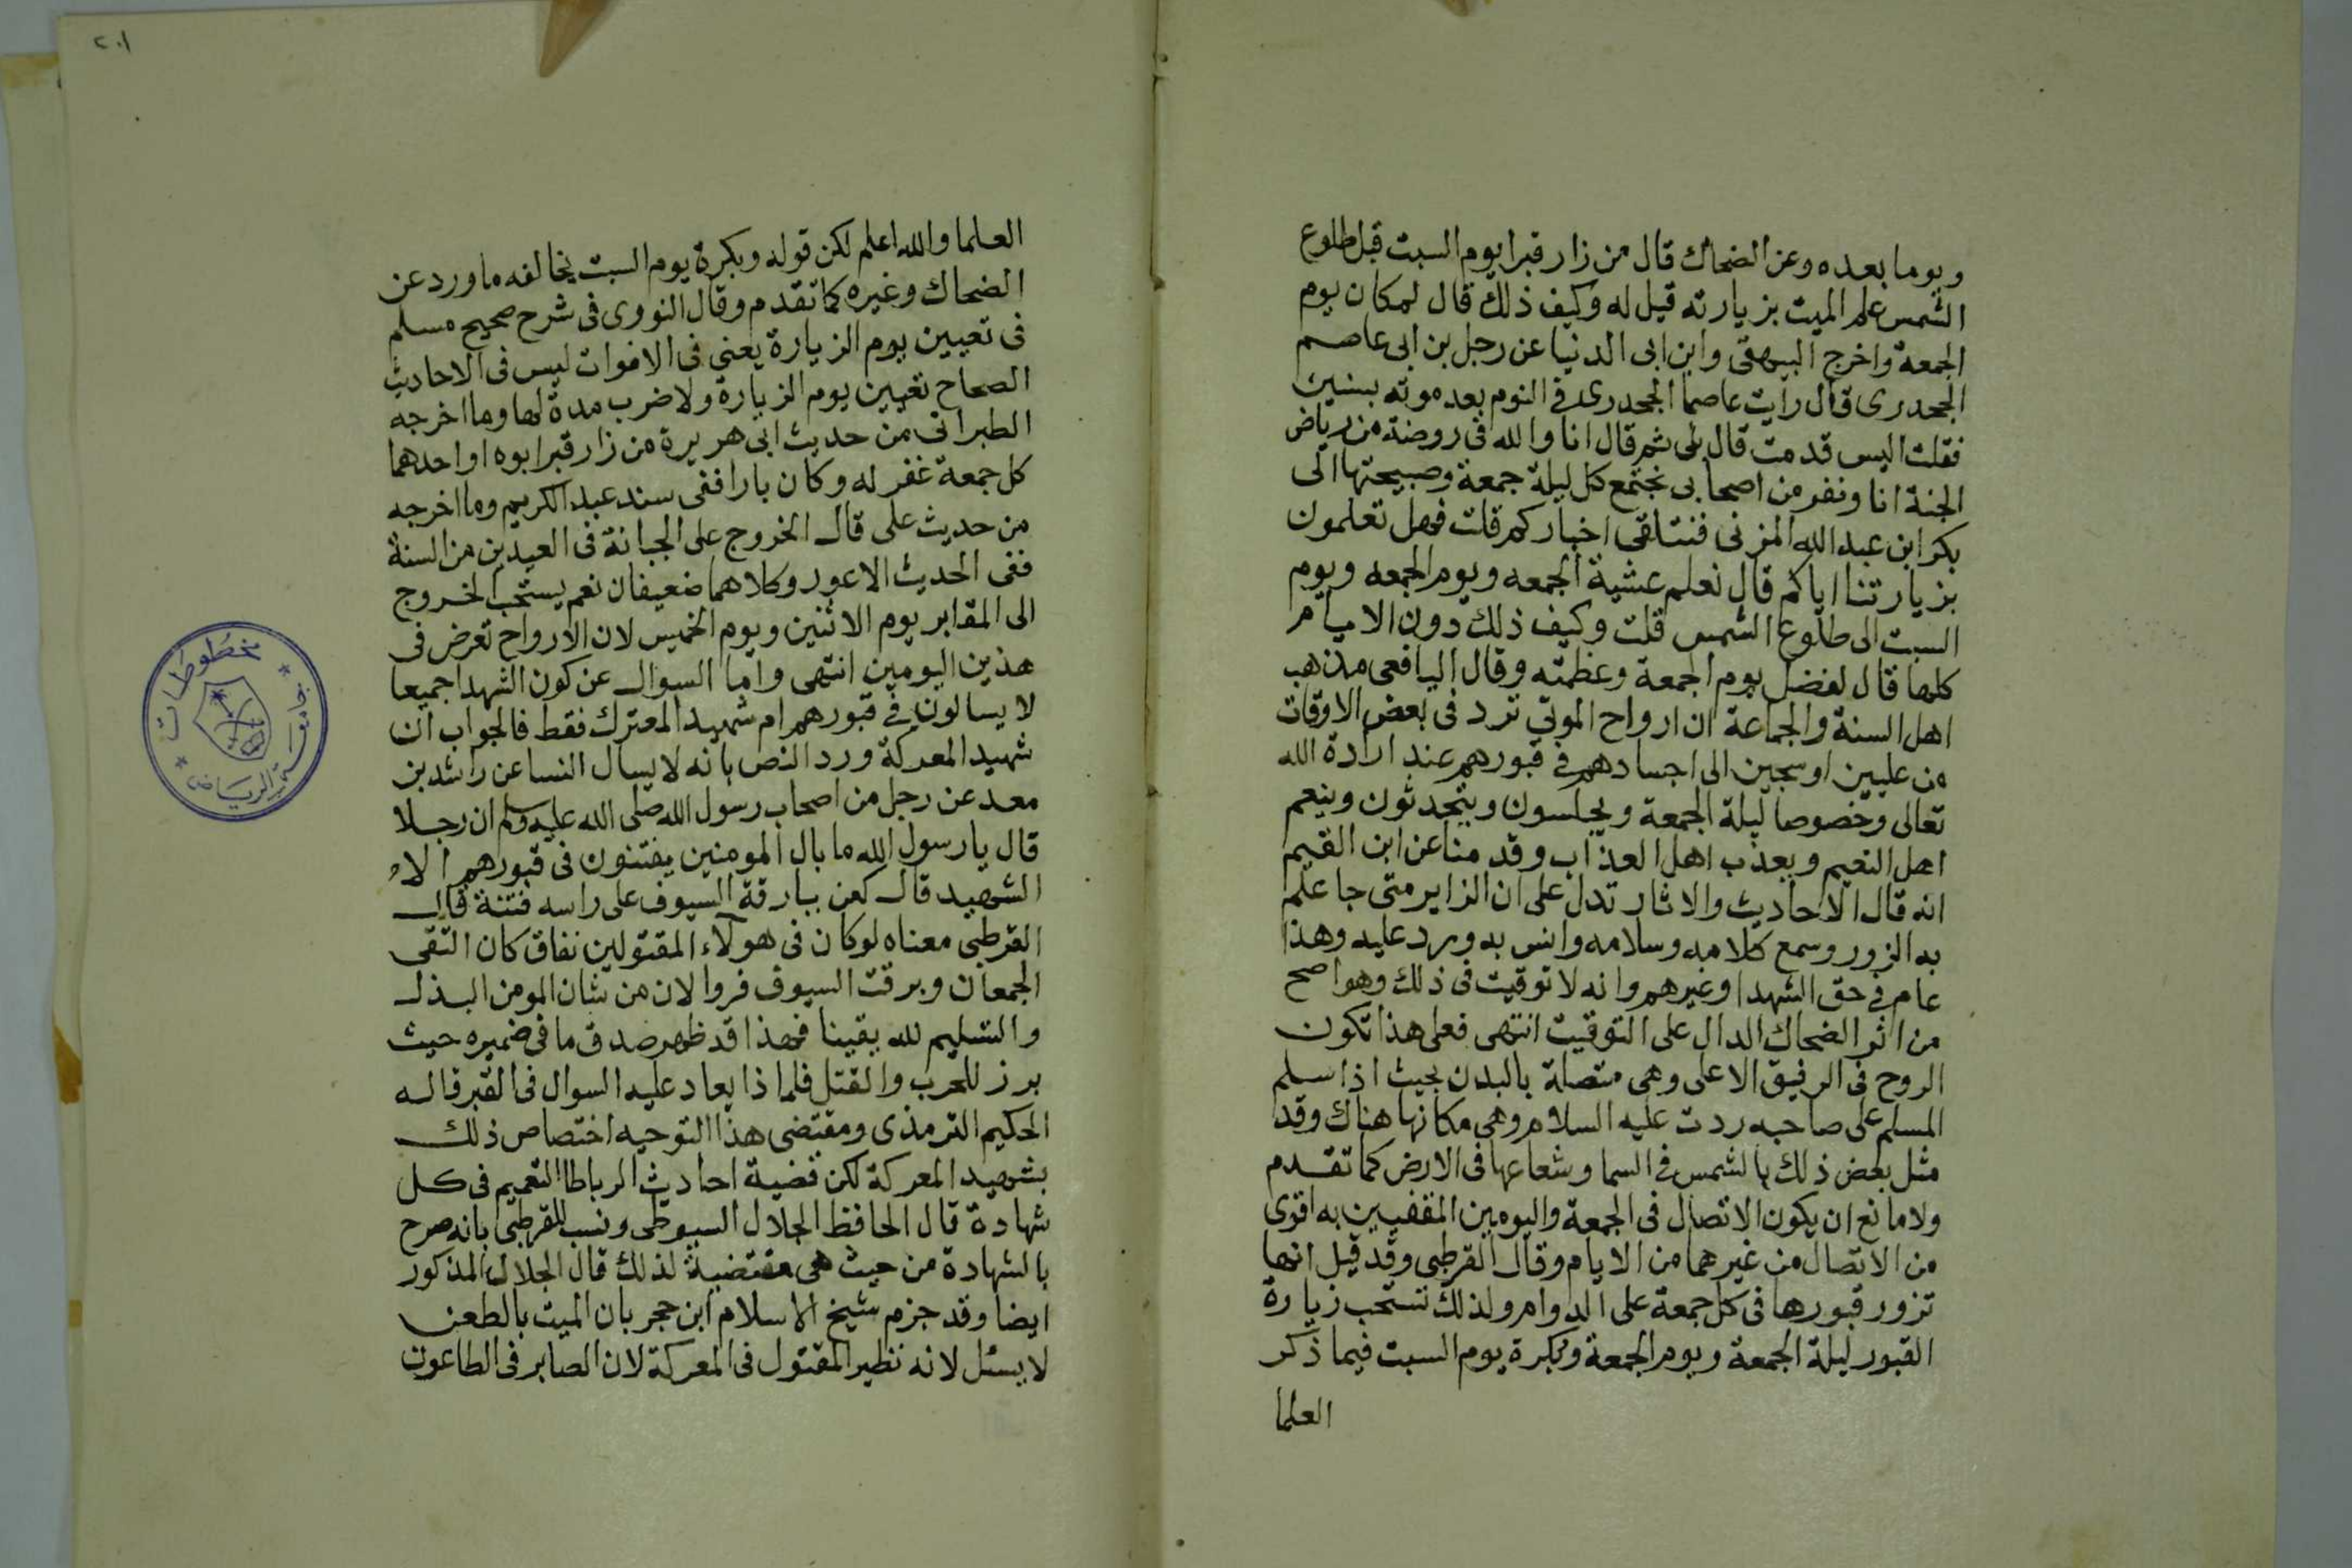 ويوما بعده وعن الضحاك قال من زار قبرا يوم السبت قبل طلوع
الشمس علم الميت بزيارته قيل له وكيف ذلك قال لمكان يوم
الجمعة واخرج البيهقى وابن ابى الدنيا عن رجل بن ابى عاصم
الجحدرى قال رايت عاصما الجحدرى فى النوم بعد موته بسنين
فقلت اليس قد مت قال بلى ثم قال انا والله فى روضة من رياض
الجنة انا ونفر من اصحابى نجتمع كل ليلة جمعة وصبيحتها الى
بكر ابن عبد الله المزنى فنتلقى اخباركم قلت فهل تعلمون
بزيارتنا اياكم قال نعلم عشية الجمعه ويوم الجمعه ويوم
السبت الى طلوع الشمس قلت وكيف ذلك دون الايام
كلها قال لفضل يوم الجمعة وعظمته وقال اليافعى مذهب
اهل السنة والجماعة ان ارواح الموتى ترد فى بعض الاوقات
من عليين او سجين الى اجسادهم فى قبورهم عند ارادة الله
تعالى وخصوصا ليلة الجمعة ويجلسون ويتحدثون وينعم
اهل النعيم ويعذب اهل العذاب وقدمنا عن ابن القيم
انه قال الاحاديث والاثار تدل على ان الزاير متى جا علم
به المزور وسمع كلامه وسلامه وانس به ورد عليه وهذا
عام فى حق الشهدا وغيرهم وانه لا توقيت فى ذلك وهو اصح
من اثر الضحاك الدال على التوقيت انتهى فعلى هذا تكون
الروح فى الرفيق الاعلى وهى متصلة بالبدن بحيث اذا سلم
المسلم على صاحبه ردت عليه السلام وهى مكانها هناك وقد
مثل بعض ذلك بالشمس فى السما وشعاعها فى الارض كما تقدم
ولا مانع ان يكون الاتصال فى الجمعة واليومين المقفيين به اقوى
من الاتصال من غيرهما من الايام وقال القرطبى وقد قيل انها
تزور قبورها فى كل جمعة على الدوام ولذلك تستحب زيارة
القبور ليلة الجمعة ويوم الجمعة وبكرة يوم السبت فيما ذكر
العلما
٢٠١
العلما والله اعلم لكن قوله وبكرة يوم السبت يخالفه ما ورد عن
الضحاك وغيره كما تقدم وقال النووى فى شرح صحيح مسلم
فى تعيين يوم الزيارة يعنى فى الاموات ليس فى الاحاديث
الصحاح تعيين يوم الزيارة ولا ضرب مدة لها وما اخرجه
الطبرانى من حديث ابى هريرة من زار قبر ابوه او احدهما
كل جمعة غفر له وكان بارا ففى سند عبد الكريم وما اخرجه
من حديث على قال الخروج على الجبانة فى العيدين من السنة
ففى الحديث الاعور وكلاهما ضعيفان نعم يستحب الخروج
الى المقابر يوم الاثنين ويوم الخميس لان الارواح تعرض فى
هذين اليومين انتهى واما السوال عن كون الشهدا جميعا
لا يسالون فى قبورهم ام شهيد المعترك فقط فالجواب ان
شهيد المعركة ورد النص بانه لا يسال النسا عن راشد بن
معد عن رجل من اصحاب رسول الله صلى الله عليه وسلم ان رجلا
قال يا رسول الله ما بال المومنين يفتنون فى قبورهم الا
الشهيد قال كفى ببارقة السيوف على راسه فتنة قال
القرطبى معناه لو كان فى هولاء المقتولين نفاق كان التقى
الجمعان وبرقت السيوف فروا لان من شان المومن البذل
والتسليم لله يقينا فهذا قد ظهر صدق ما فى ضميره حيث
برز للحرب والقتل فلماذا يعاد عليه السوال فى القبر قاله
الحكيم الترمذى ومقتضى هذا التوجيه اختصاص ذلك
بشهيد المعركة لكن قضية احاديث الرباط التعميم فى كل
شهادة قال الحافظ الجلال السيوطى ونسب للقرطبى بانه صرح
بالشهادة من حيث هى مقتضية لذلك قال الجلال المذكور
ايضا وقد جزم شيخ الاسلام ابن حجر بان الميت بالطعن
لا يسئل لانه نظير المقتول فى المعركة لان الصابر فى الطاعون
مخطوطات
جامعة الرياض